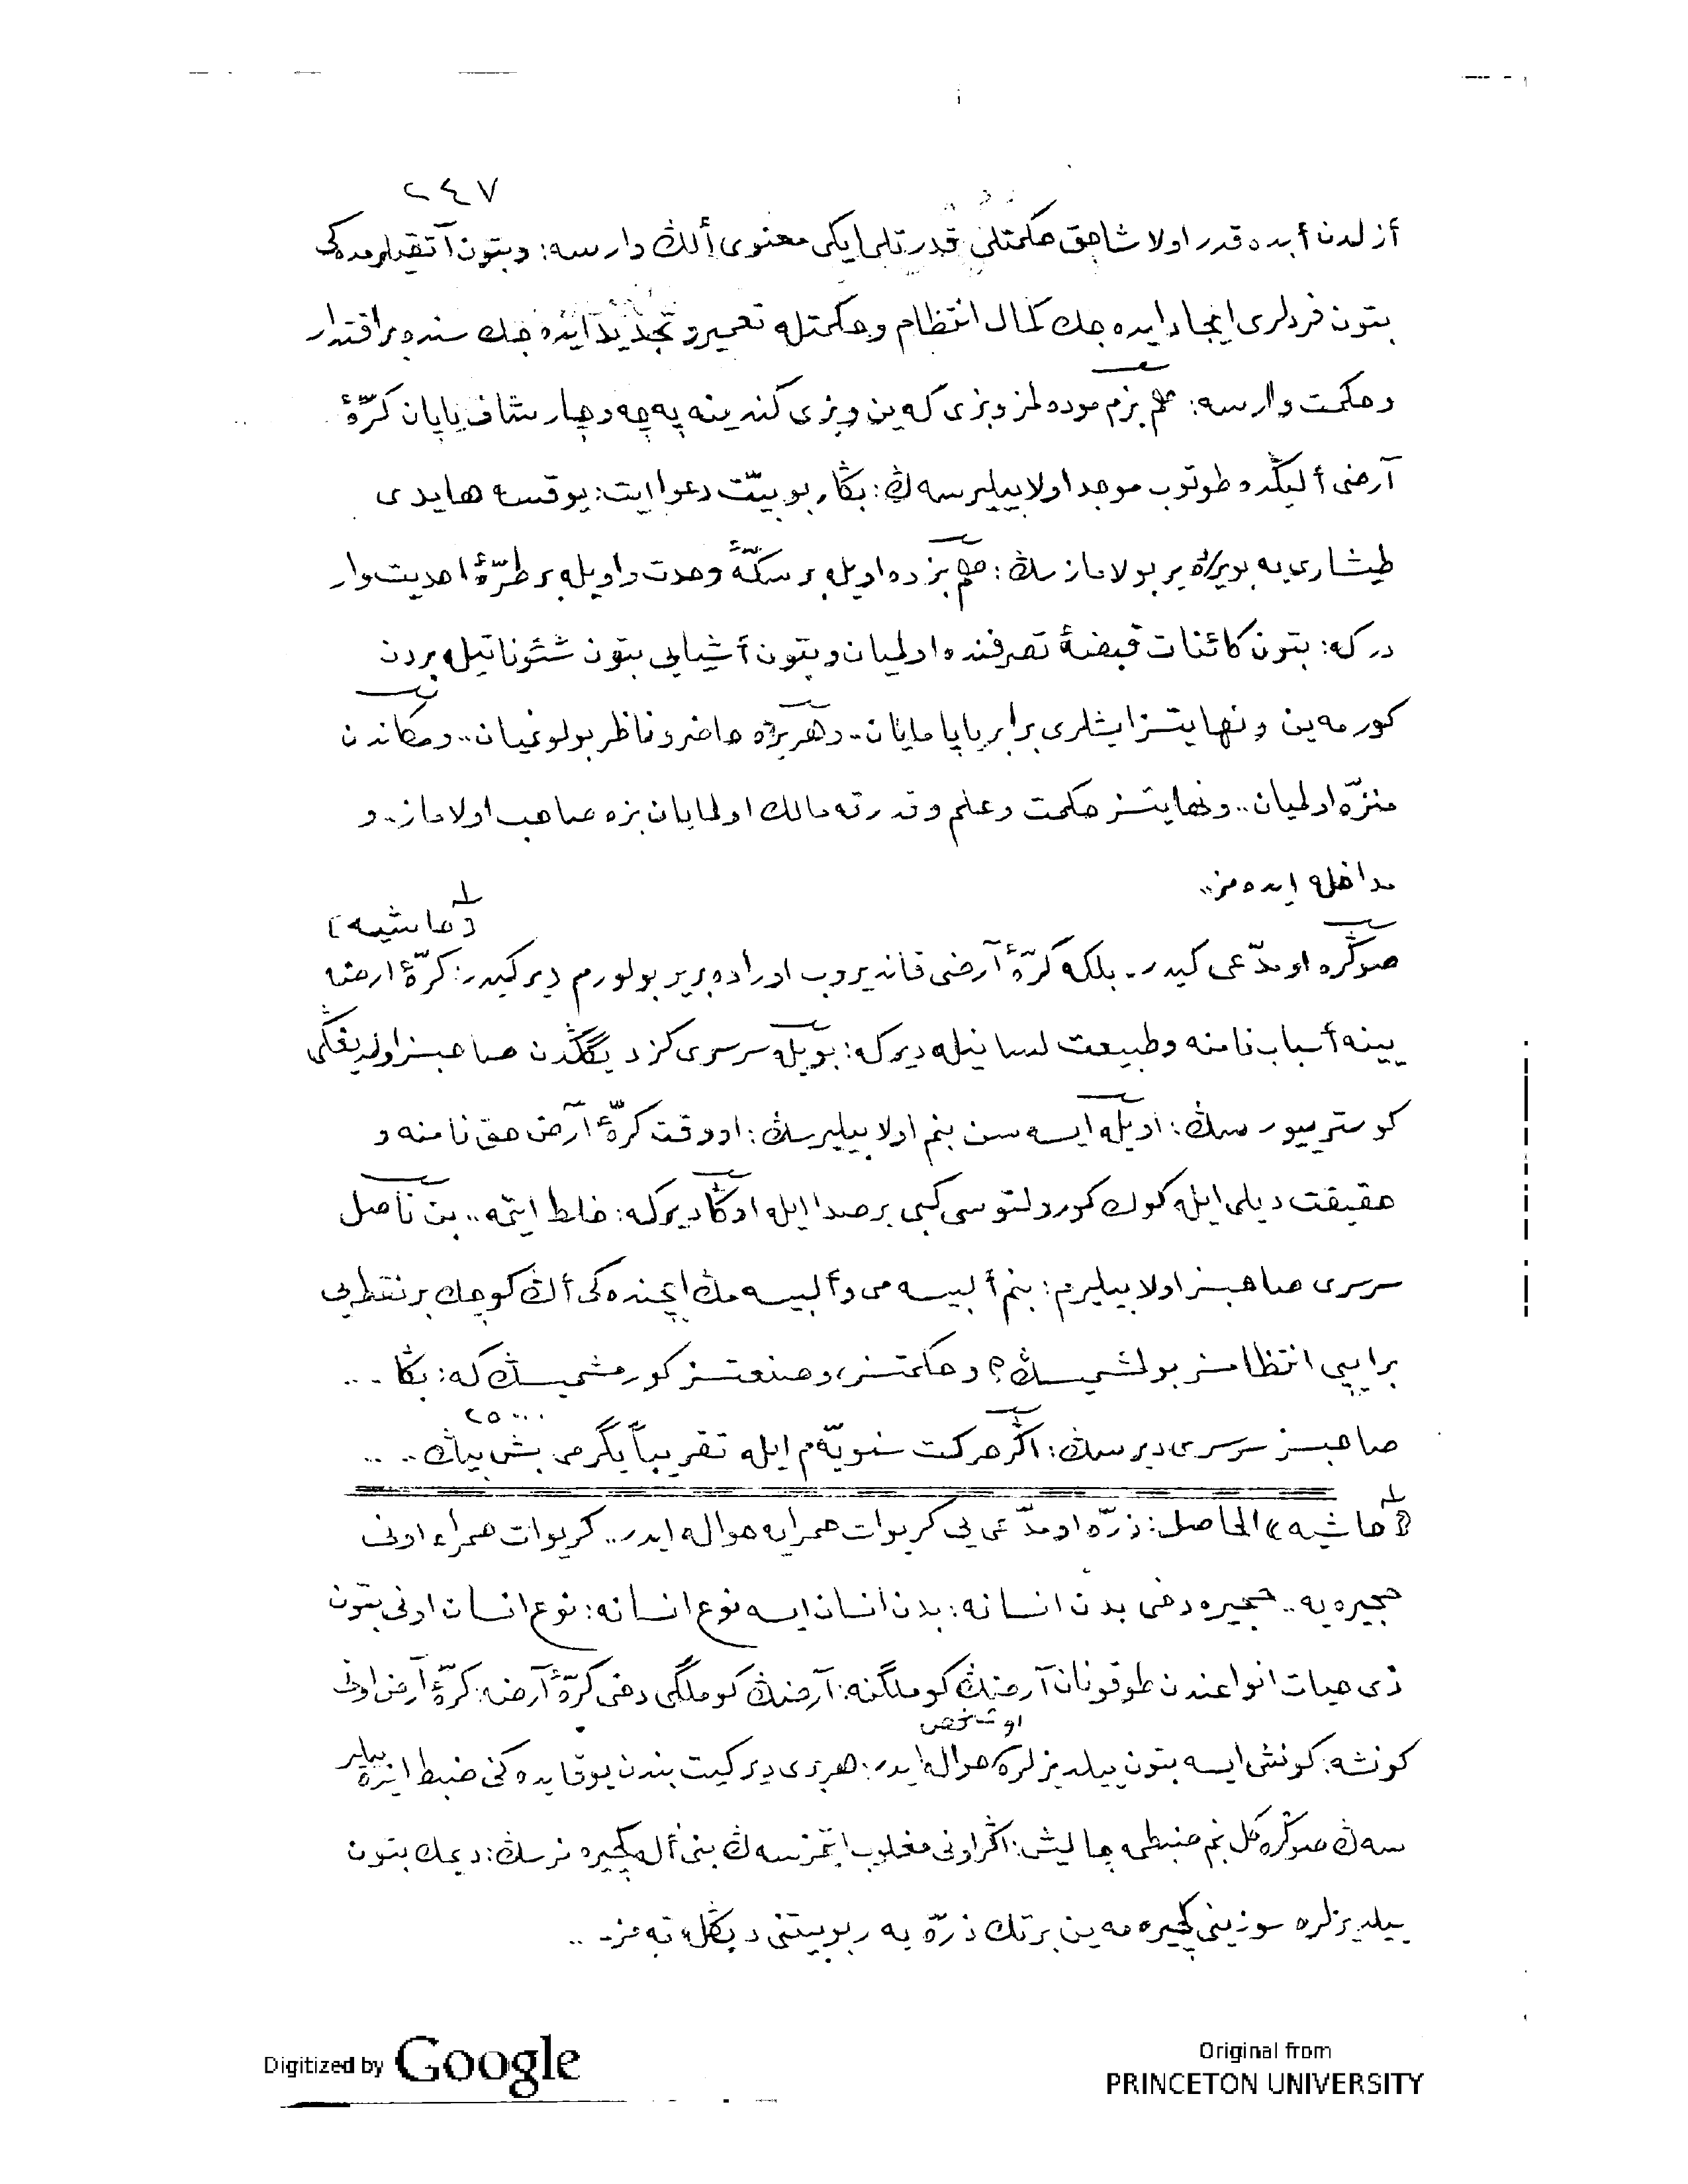 ٢٤٧
أزلدن أبده قدر اولاشاجق حكمتلى قدرتلى ايكى معنوى ألڭ وارسه: وبتون آتقيلرمده‌كى
بتون فردلرى ايجاد ايده‌جك كمال انتظام وحكمتله تعمير و تجديد ايده‌جك سنده بر اقتدار
وحكمت وارسه: هم بزم موده‌لمز وبزى كه‌ين وبزى كندينه په‌چه وچارشاف ياپان كرّۀ
آرضى ألڭده طوتوب موجد اولابيليرسه‌ڭ: بڭا ربوبيّت دعوا ايت: يوقسه هايدى
طيشارى‌يه بو يرده ير بولامازسڭ: هم بزده اويله بر سكّۀ وحدت واويله بر طرّۀ احديت وار
در كه: بتون كائنات قبضۀ تصرفنده اولميان وبتون أشيايى بتون شئوناتيله بردن
كورمه‌ين ونهايتسز ايشلرى برابر ياپامايان.. وهر يرده حاضر وناظر بولونميان.. ومكاندن
منزّه اولميان.. ونهايتسز حكمت وعلم وقدرته مالك اولمايان بزه صاحب اولاماز.. و
مداخله ايده‌مز..
(حاشيه)
صوڭره او مدّعى كيدر.. بلكه كرّۀ آرضى قانديروب اوراده بر ير بولورم دير كيدر: كرّۀ ارضه
يينه أسباب نامنه وطبيعت لسانيله دير كه: بويله سرسرى كزديگڭدن صاحبسز اولديغڭى
كوستريیورسڭ: اويله ايسه سن بنم اولابيليرسڭ: او وقت كرّۀ آرض حق نامنه و
حقيقت ديلى ايله كوك كورولتوسى كبى بر صدا ايله اوڭا دير كه: خلط ايتمه.. بن ناصل
سرسرى صاحبسز اولابيليرم: بنم ألبيسه‌مى وألبيسه‌مڭ ايچنده‌كى أڭ كوچك بر نقطه‌يى
بر ايپى انتظامسز بولمشميسڭ؟ وحكمتسز، وصنعتسز كورمشميسڭ كه: بڭا ...
صاحبسز سرسرى ديرسڭ: اگر حركت سنويّه‌م ايله تقريباً يگرمى بش بيڭ ....
٢٥٠٠٠
(حاشيه) الحاصل: ذرّه او مدّعى‌يى كريوات حمرايه حواله ايدر.. كريوات حمراء اونى
حجيره‌يه.. حجيره دخى بدن انسانه: بدن انسان ايسه نوع انسانه: نوع انسان اونى بتون
ذى حيات انواعندن طوقونان آرضڭ كوملگنه: آرضڭ كوملگى دخى كرّۀ آرضه: كرّۀ آرض اونى
كونشه: كونش ايسه بتون ييلديزلره او شخص حواله ايدر: هر برى دير كيت بندن يوقارىده‌كنى ضبط ايده‌بيلير
سه‌ڭ صوڭره كل بنم ضبطمه چاليش: اگر اونى مغلوب ايتمزسه‌ڭ بنى أله كچيره‌مزسڭ: ديمك بتون
ييلديزلره سوزينى كچيره‌مه‌ين بر تك ذرّه‌يه ربوبيتنى ديڭلته‌مز...
Digitized by Google
Original from
PRINCETON UNIVERSITY